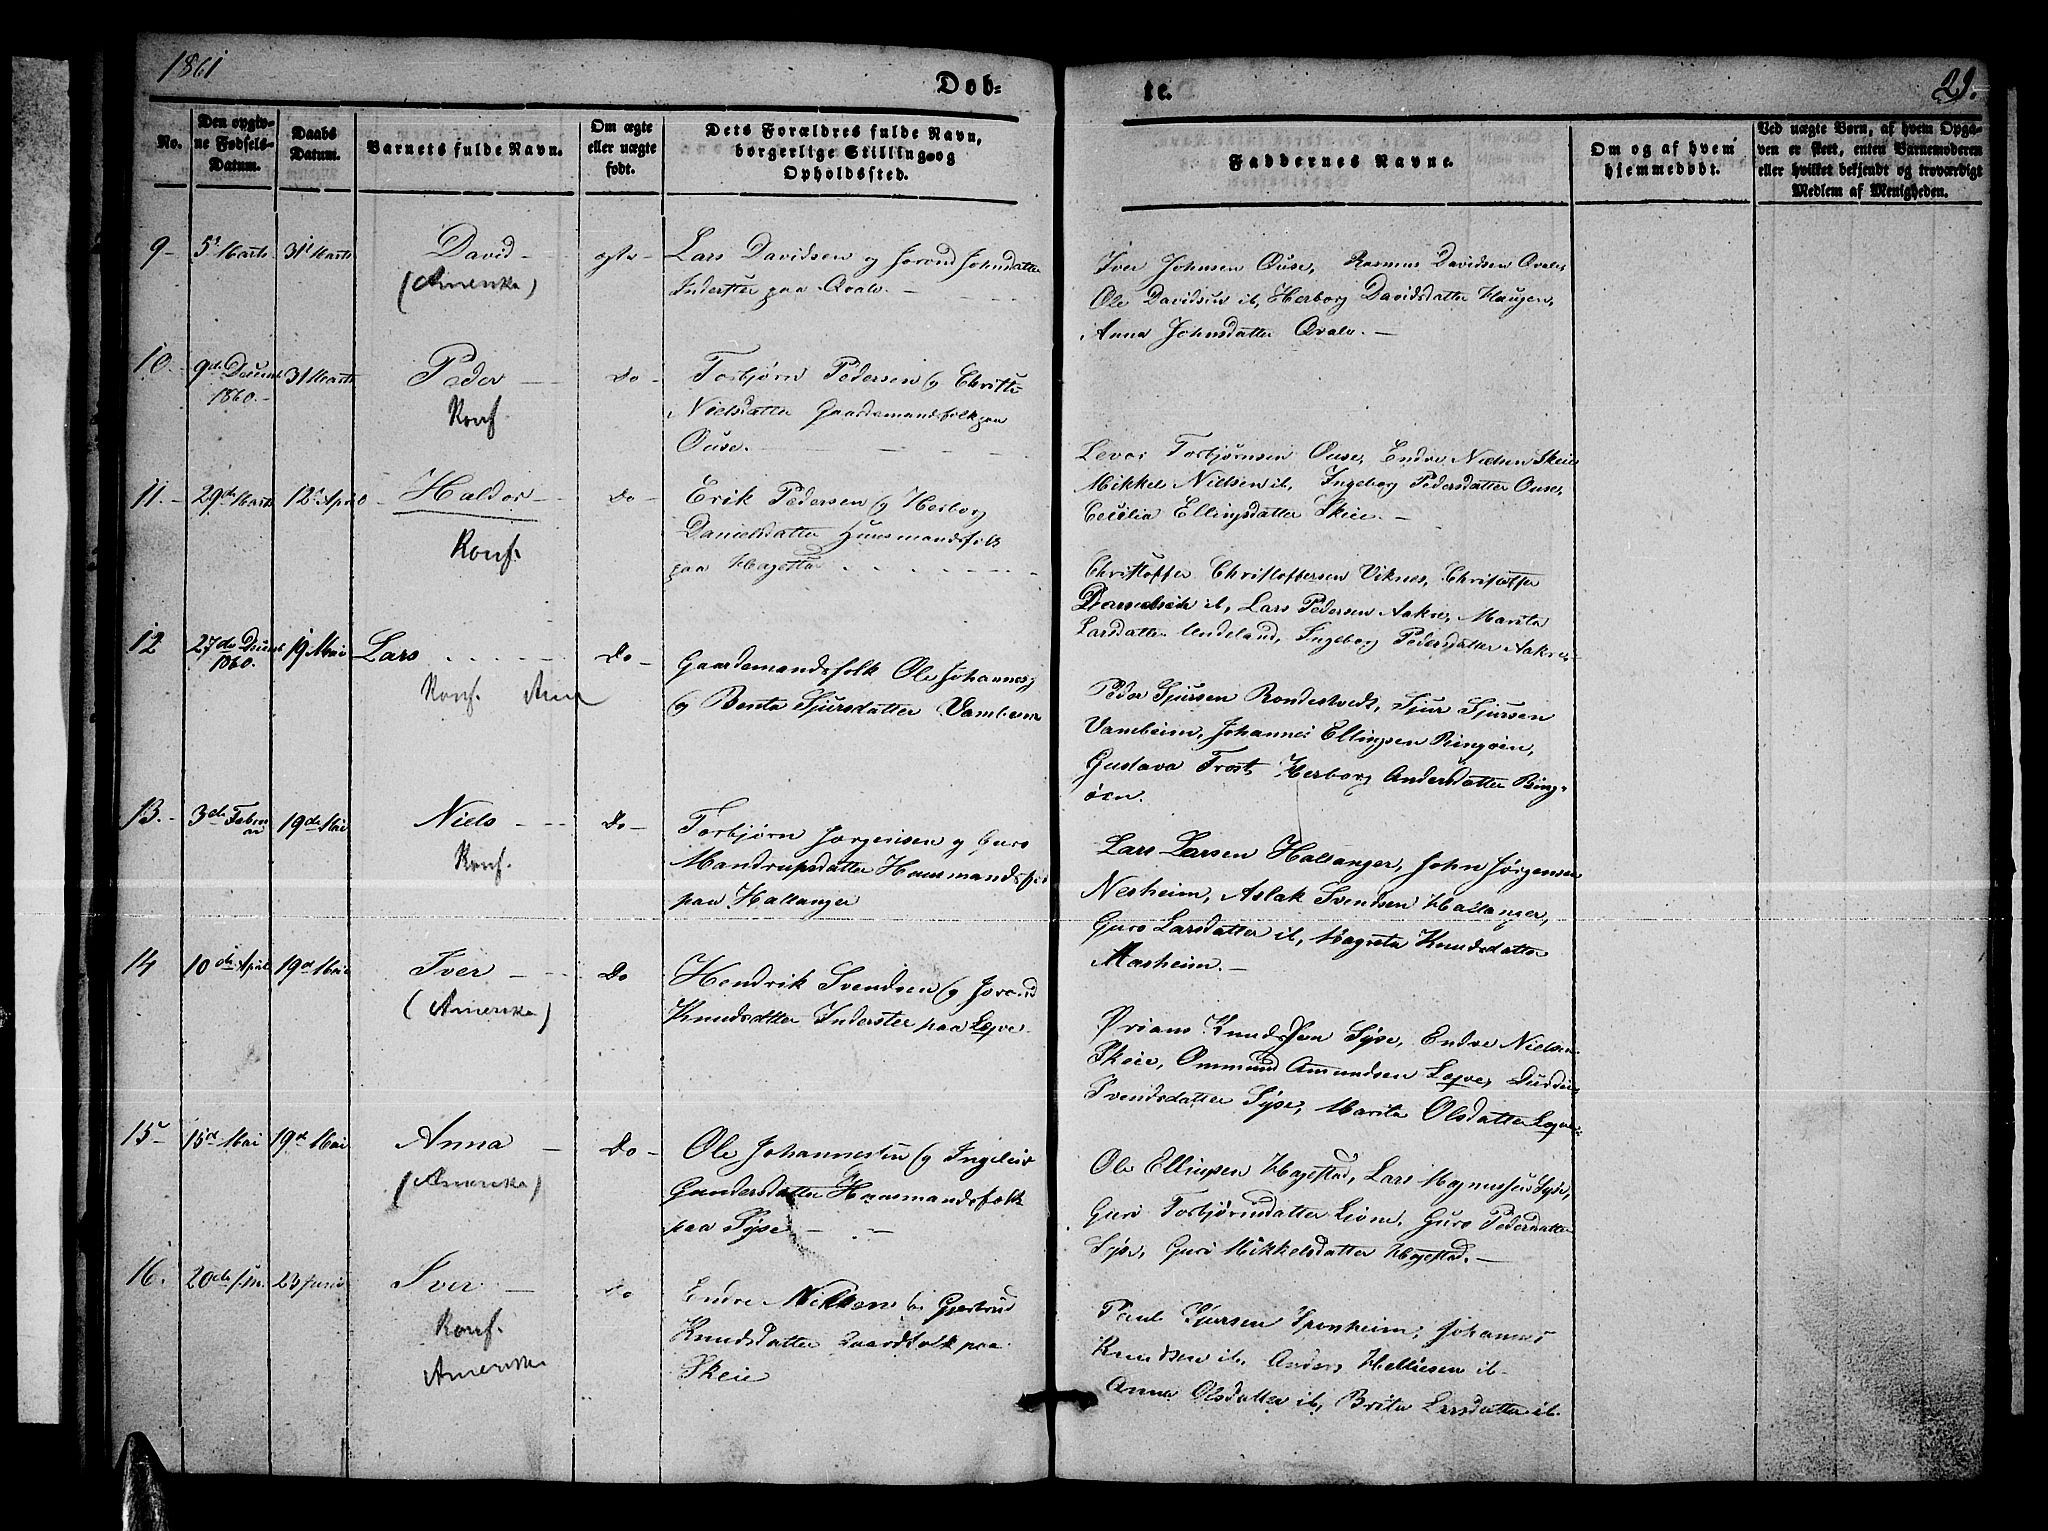 1861
Døb-
te.
29.
No.
Den opgiv-
ne Fødsels-
Datum.
Daabs
Datum.
Barnets fulde Navn.
Om ægte
eller uægte
født.
Dets Forældres fulde Navn,
borgerlige Stilling og
Opholdssted.
Faddernes Navne.
Om og af hvem
hjemmedøbt.
Ved uægte Børn, af hvem Opga-
ven er skeet, enten Barnemoderen
eller hvilket bekjendt og troværdigt
Medlem af Menigheden.
9 - 5te Marts 31te Marts David - ægte -
(Amerika)
Lars Davidsen og Jorond Johnsdatter
Inderster paa Qvale. -
Iver Johnsen Ouse, Rasmus Davidsen Qvale,
Ole Davidsen ib, Herborg Davidsdatter Haugen,
Anna Johnsdatter Qvale. -
10. - 9de Decemb 1860. - 31 Marts Peder - Do -
Konf.
Torbjørn Pedersen og Christi
Nielsdatter Gaardemandsfolk paa
Ouse. -
Levor Torbjørnsen Ouse, Endre Nielsen Skeie
Mikkel Nielsen ib, Ingeborg Pedersdatter Ouse,
Cecilia Ellingsdatter Skeie. -
11. - 29de Marts 12te April Haldor - Do -
Konf.
Erik Pedersen og Herborg
Danielsdatter Huusmandsfolk
paa Hagestad
Christoffer Christoffersen Viknes, Christoffer
Danielsen ib, Lars Pedersen Aakre, Marita
Larsdatter Undeland, Ingeborg Pedersdatter Aakre -
12 27de Decemb 1860. 19 Mai Lars - Do -
Konf. Ame
Gaardemandsfolk Ole Johannes
og Benta Sjursdatter Vambeim
Peder Sjursen Rondestvedt, Sjur Sjursen
Vambeim, Johannes Ellingsen Ringøen,
Gustava Trost, Herborg Andersdatter Ring-
øen.
13. - 3de Februar 19de Mai Niels - Do -
Konf.
Torbjørn Jørgensen og Guro
Mandrupsdatter Huusmandsfolk
paa Hallanger
Lars Larsen Hallanger, John Jørgensen
Nesheim, Aslak Svendsen Hallanger,
Guro Larsdatter ib, Magreta Knudsdatter
Masheim. -
14 10de April 19de Mai Iver - Do
(Amerika)
Hendrik Svendsen og Jorond
Knudsdatter Inderster paa Legve.
Ørians Knudssen Syse, Endre Nielsen
Skeie, Ommund Amundsen Legve,
Svendsdatter Syse, Marita Olsdatter Legve.
15 - 15de Mai 19de Mai Anna - Do -
(Amerika)
Ole Johannesen og Ingeleiv
Gundersdatter Huusmandsfolk
paa Syse -
Ole Ellingsen Hagestad, Lars Magnussen Syse,
Guro Torbjørnsdatter Lione, Guro Pedersdatter
Syse, Guro Mikkelsdatter Hagestad. -
16. 20de 23 Juni Iver - Do
Konf.
Amerika
Endre Nilssen og Gjertrud
Knudsdatter Gaardfolk paa
Skeie
Paul Sjursen Sponheim, Johannes
Knudsen ib. Anders Helliesen ib -
Anna Olsdatter ib, Brita Larsdatter ib.